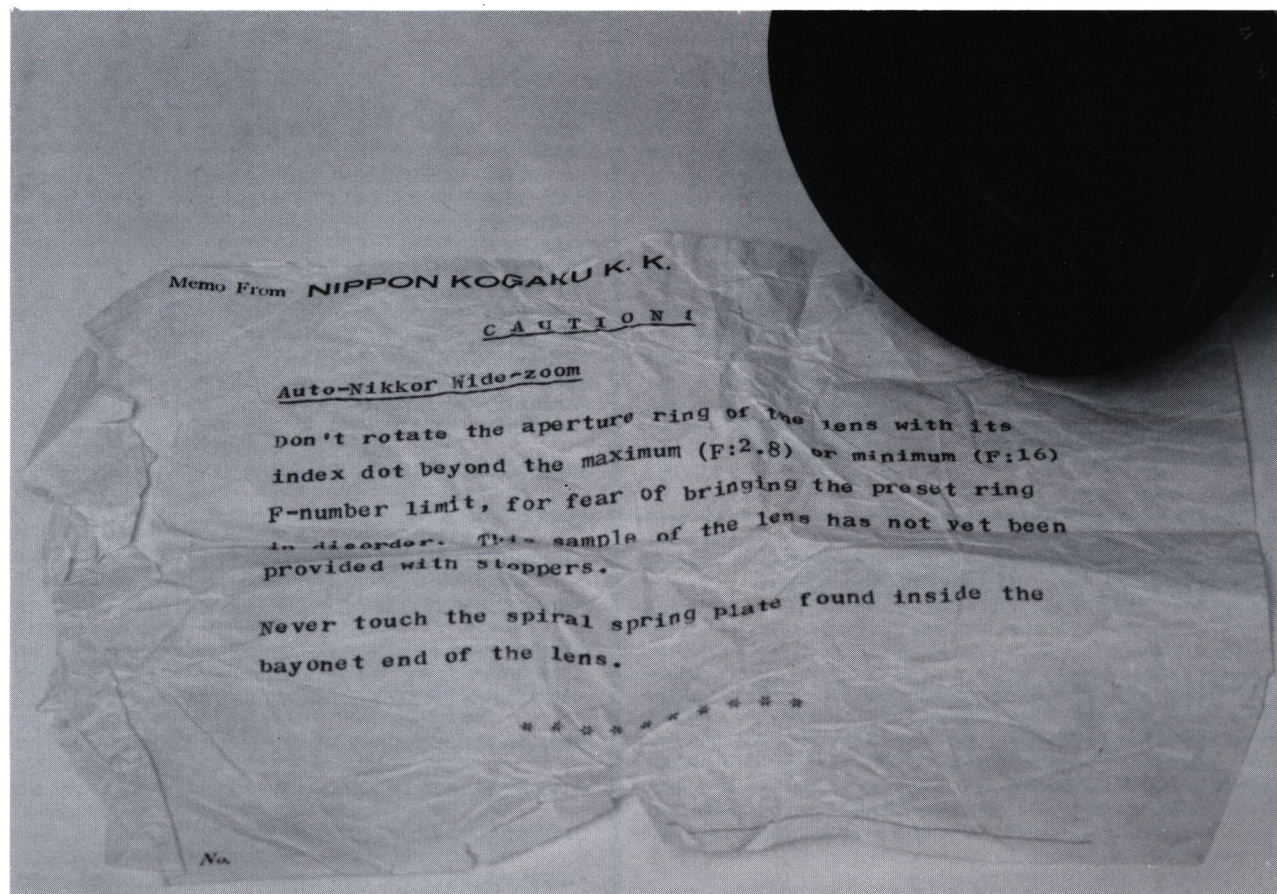 Memo From NIPPON KOGAKU K. K.
C A U T I O N !
Auto-Nikkor Wide-zoom
Don't rotate the aperture ring of the lens with its
index dot beyond the maximum (F:2.8) or minimum (F:16)
F-number limit, for fear of bringing the preset ring
in disorder. This sample of the lens has not yet been
provided with stoppers.
Never touch the spiral spring plate found inside the
bayonet end of the lens.
* * * * * * * * * *
No.